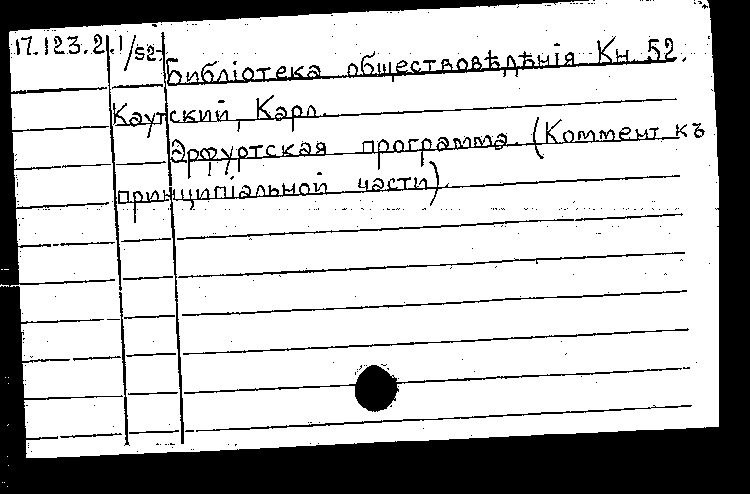 17.123.2.1/52
Библіотека обществовѣдѣнія Кн. 52.
Каутский, Карл.
Эрфуртская программа. (Коммент. къ
принципіальной части).